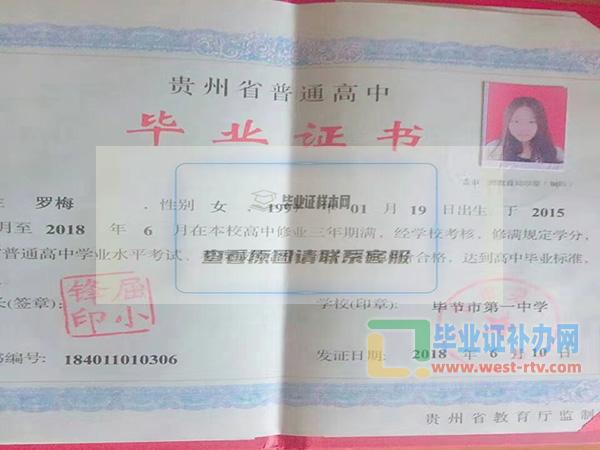 贵州省普通高中
毕业证书
罗梅 ，性别 女 ，1997 年 01 月 19 日出生 于 2015
月至 2018 年 6 月在本校高中修业三年期满，经学校考核，修满规定学分，
普通高中学业水平考试、 合格，达到高中毕业标准，
毕业证样本网
查看原图请联系客服
(签章):
锋屈
印小
学校(印章): 毕节市第一中学
编号: 184011010306
发证日期: 2018 年 6 月 10 日
毕业证补办网
www.west-rtv.com
贵州省教育厅监制